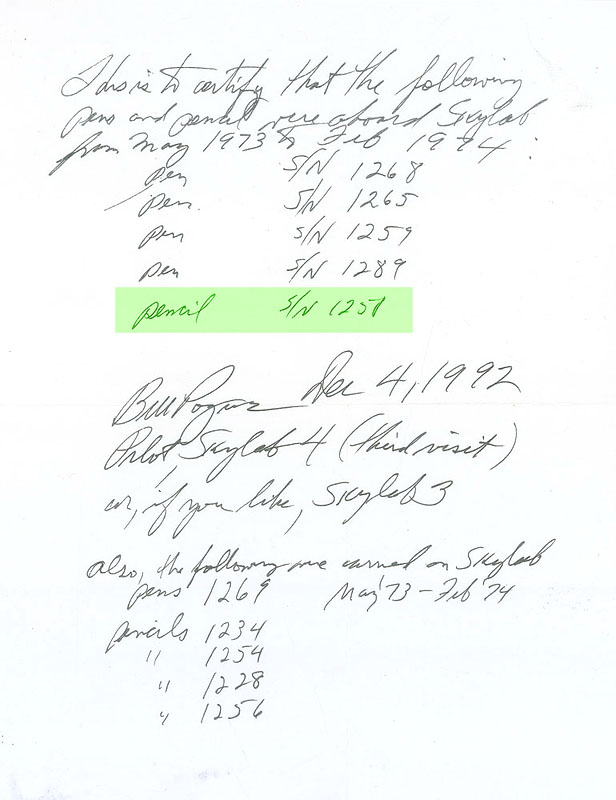 This is to certify that the following
pens and pencil were aboard Skylab
from May 1973 to Feb 1974:
pen S/N 1268
pen S/N 1265
pen S/N 1259
pen S/N 1289
pencil S/N 1251
Bill Pogue Dec 4, 1992
Pilot, Skylab 4 (third visit)
or, if you like, Skylab 3
also, the following were carried on Skylab
pens 1269 May '73 - Feb '74
pencils 1234
" 1254
" 1228
" 1256